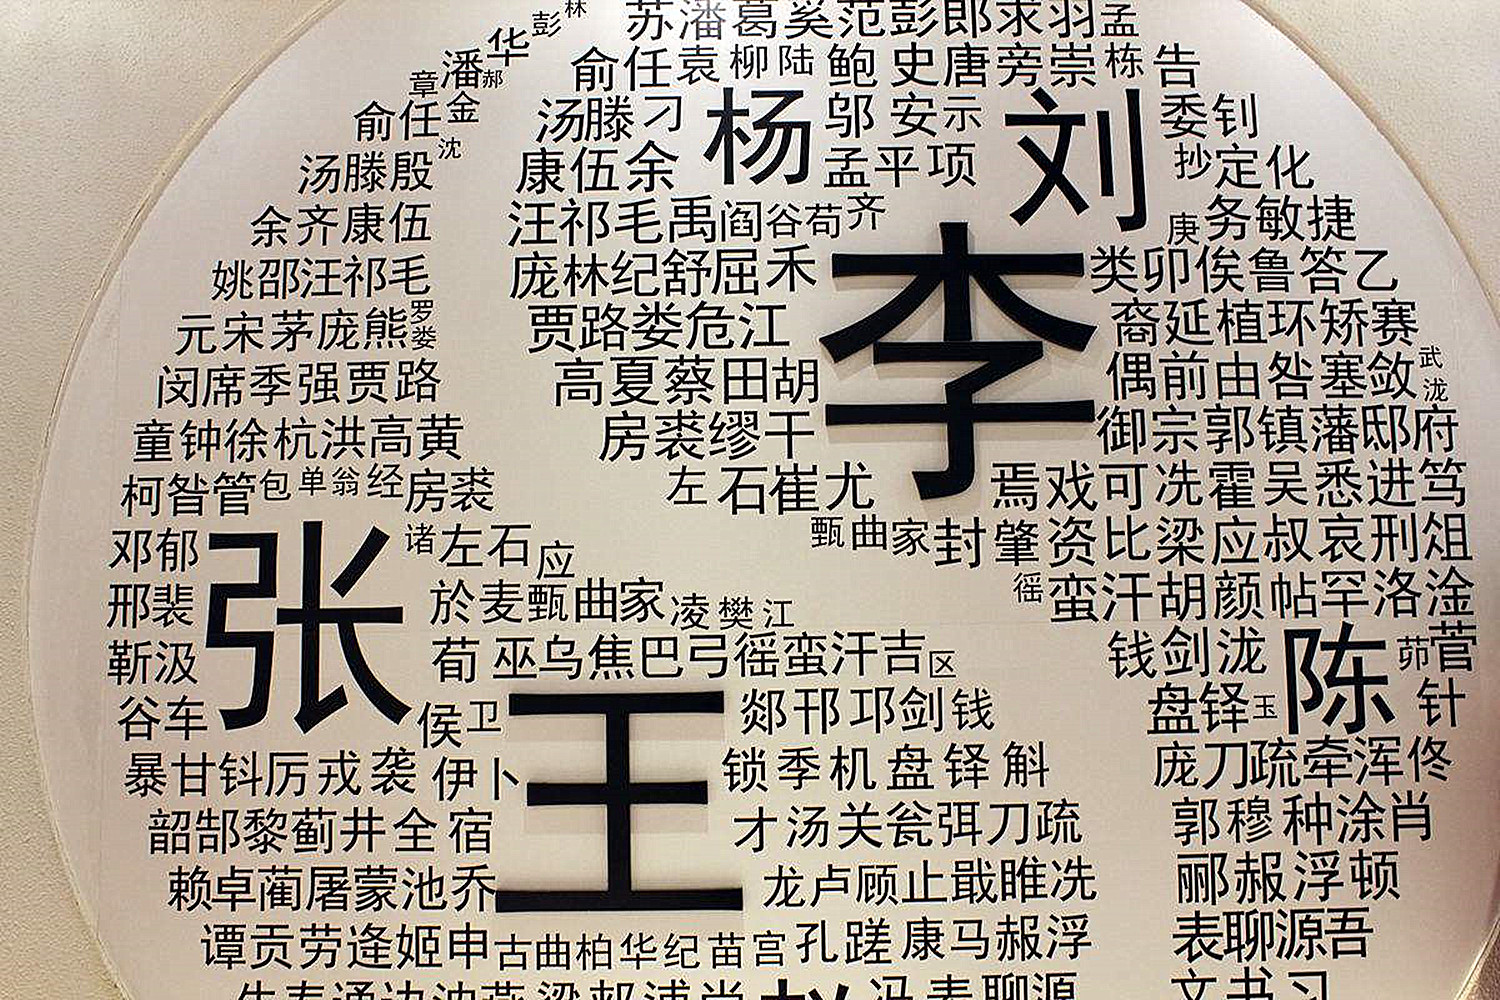 林
彭 苏潘葛奚范彭郎求羽孟
华
章潘郝 俞任袁柳陆鲍史唐旁崇栋告
俞任金 汤滕刁 杨 邬安示 刘 委钊
沈
汤滕殷 康伍余 孟平项 抄定化
余齐康伍 汪祁毛禹阎谷苟齐 庚务敏捷
姚邵汪祁毛 庞林纪舒屈禾 李 类卯俟鲁答乙
元宋茅庞熊罗娄 贾路娄危江 裔延植环矫赛
闵席季强贾路 高夏蔡田胡 偶前由昝塞敛武泷
童钟徐杭洪高黄 房裘缪干 御宗郭镇藩邸府
柯昝管包单翁经房裘 左石崔尤 焉戏可冼霍吴悉进笃
邓郁 张 诸左石应 甄曲家封肇资比梁应叔哀刑俎
邢裴 於麦甄曲家凌樊江 徭蛮汗胡颜帖罕洛淦
靳汲 荀巫乌焦巴弓徭蛮汗吉区 钱剑泷 陈 茆菅
谷车 侯卫 王 郯邗邛剑钱 盘铎玉 针
暴甘钭厉戎袭伊卜 锁季机盘铎斛 庞刀疏牵浑佟
韶郜黎蓟井全宿 才汤关瓮弭刀疏 郭穆种涂肖
赖卓蔺屠蒙池乔 龙卢顾止戢睢冼 郦赧浮顿
谭贡劳逄姬申古曲柏华纪苗宫孔蹉康马赧浮 表聊源吾
冯表聊源 文书习